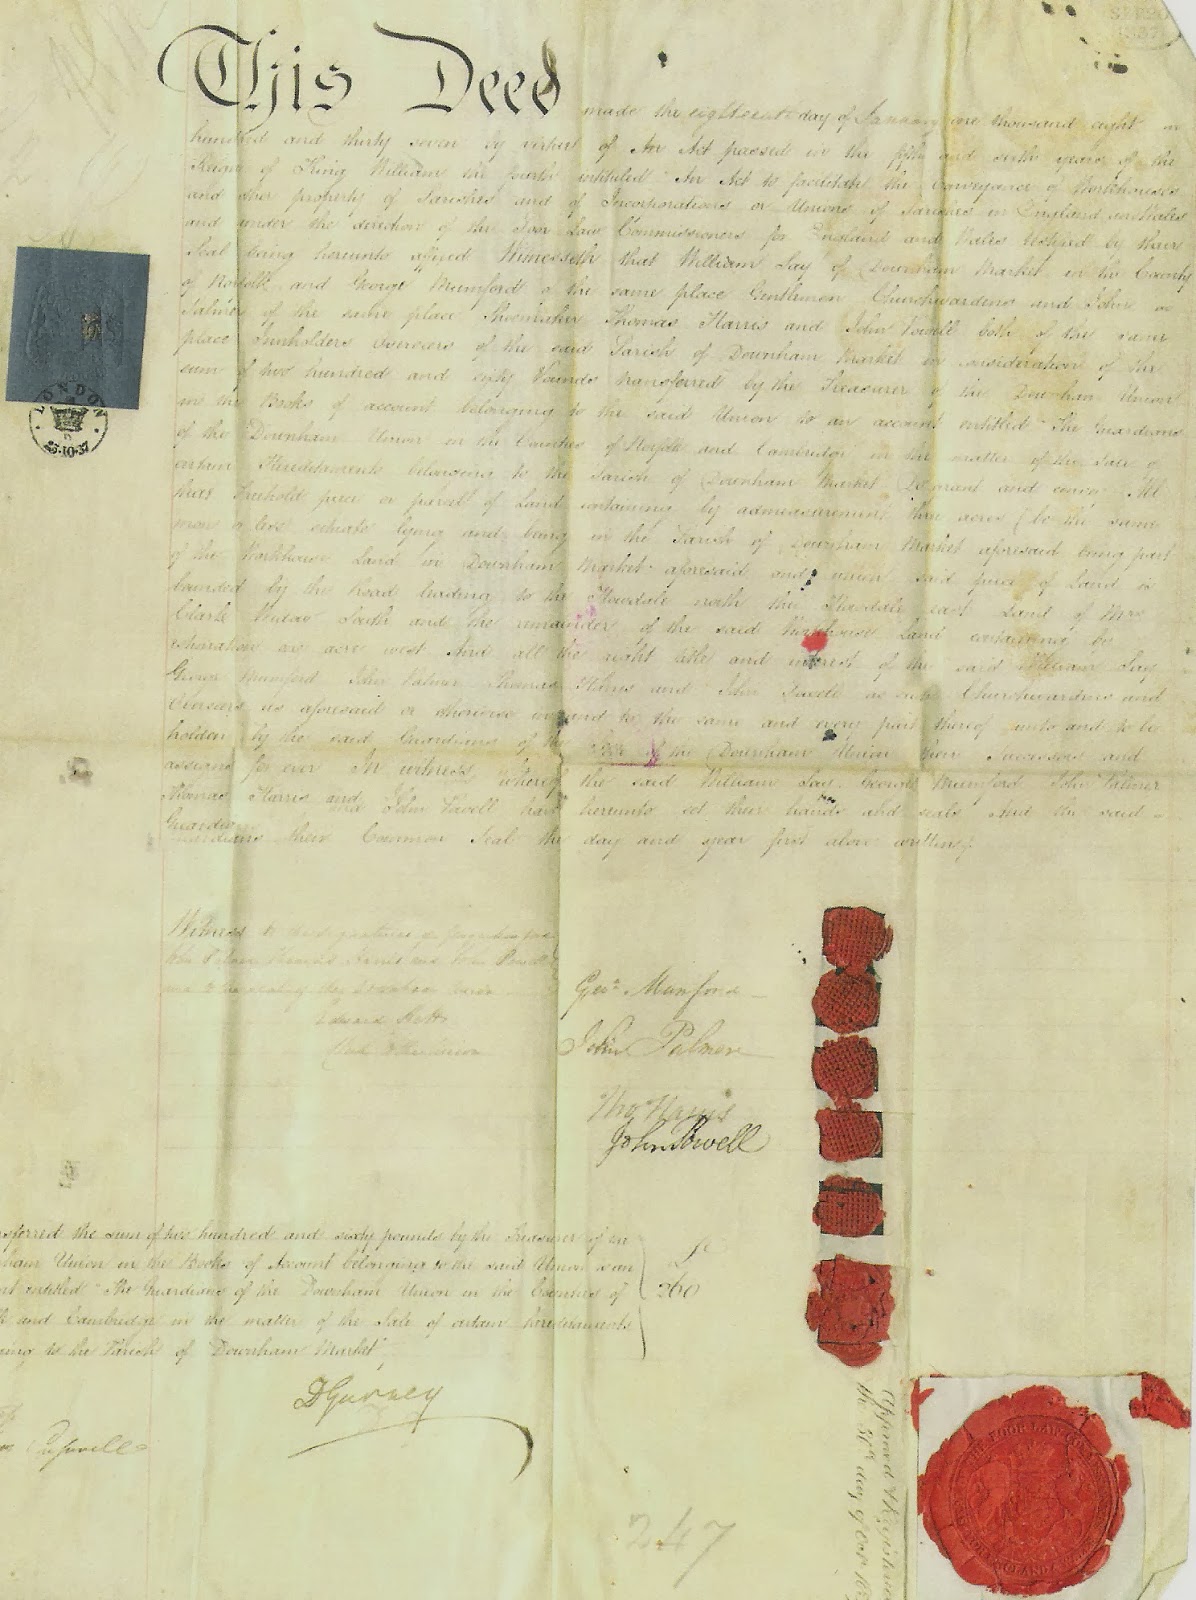 This Deed made the eighteenth day of January one thousand eight
hundred and thirty seven by virtue of An Act passed in the fifth and sixth years of the
Reign of King William the fourth intituled "An Act to facilitate the Conveyance of Workhouses
and other property of Parishes and of Incorporations or Unions of Parishes in England and Wales
and under the direction of the Poor Law Commissioners for England and Wales testified by their
Seal being hereunto affixed Witnesseth that William Say of Downham Market in the County
of Norfolk and George Mumford of the same place Gentlemen Churchwardens and John
Palmer of the same place Shoemaker Thomas Harris and John Powell both of the same
place Innholders Overseers of the said Parish of Downham Market in consideration of the
sum of two hundred and sixty Pounds transferred by the Treasurer of the Downham Union
in the Books of account belonging to the said Union to an account entitled "The Guardians
of the Downham Union in the Counties of Norfolk and Cambridge in the matter of the Sale of
certain Hereditaments belonging to the Parish of Downham Market" Do grant and convey All
that Freehold piece or parcel of Land containing by admeasurement three acres (be the same
more or less) situate lying and being in the Parish of Downham Market aforesaid being part
of the Workhouse Land in Downham Market aforesaid and which said piece of Land is
bounded by the Road leading to the Howdale north the Howdale east Land of Mrs
Clarke Widow South and the remainder of the said Workhouse Land containing by
estimation an acre west And all the right title and interest of the said William Say
George Mumford John Palmer Thomas Harris and John Powell as such Churchwardens and
Overseers as aforesaid or otherwise in and to the same and every part thereof unto and to be
holden by the said Guardians of the Poor of the Downham Union their Successors and
assigns for ever In witness whereof the said William Say George Mumford John Palmer
Thomas Harris and John Powell have hereunto set their hands and seals And the said
Guardians their Common Seal the day and year first above written
Witness to the signatures of
John Palmer Thomas Harris and John Powell
and to the seal of the Downham Union
Edward
Geo. Mumford
John Palmer
Thos Harris
John Powell
sferred the sum of two hundred and sixty pounds by the Treasurer of the
ham Union in the Books of Account belonging to the said Union to an
nt entitled "The Guardians of the Downham Union in the Counties of
k and Cambridge in the matter of the Sale of certain hereditaments
ging to the Parish of Downham Market"
£
260
D Gurney
247
Approved & Registered
the 31st day of Octr
LONDON
25·10·37